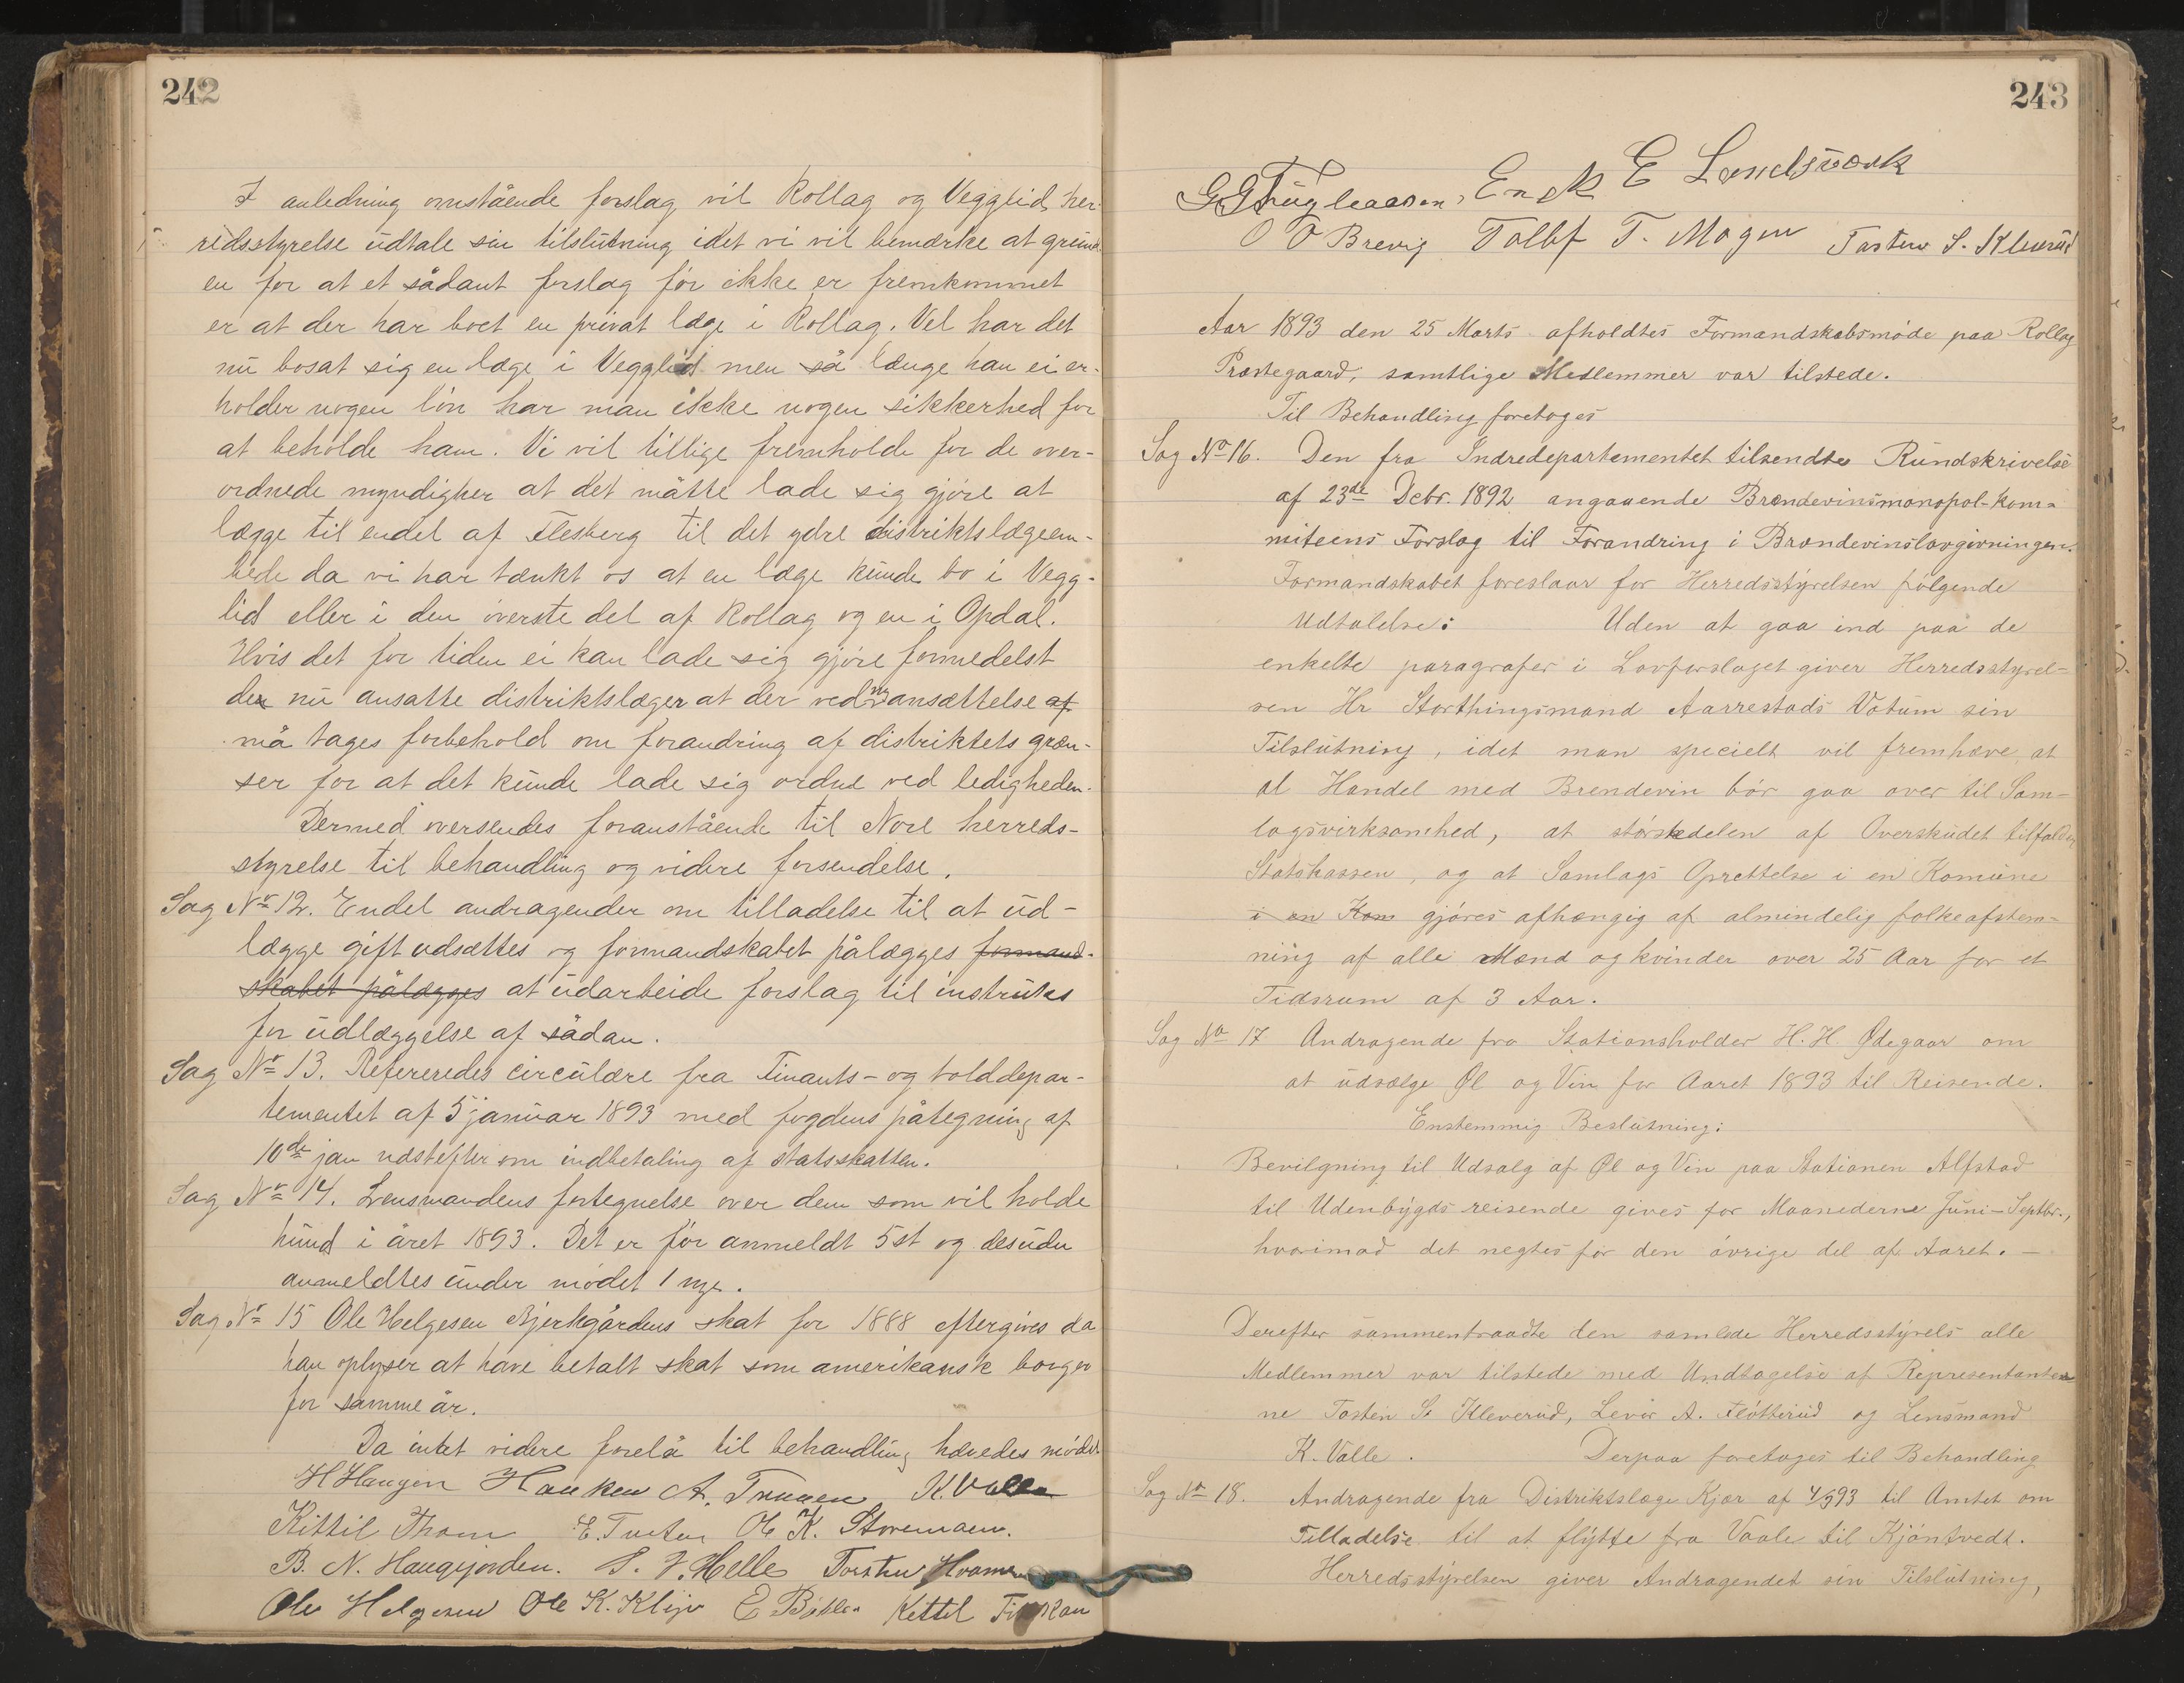 242
I anledning omstående forslag vil Rollag og Vegglid her-
redsstyrelse udtale sin tilslutning idet vi vil bemærke at grund
en for at et sådant forslag før ikke er fremkommet
er at der har boet en privat læge i Rollag. Vel har det
nu bosat sig en læge i Vegglid men så længe han ei er-
holder nogen løn har man ikke nogen sikkerhed for
at beholde ham. Vi vil tillige fremholde for de over-
ordnede myndigher at det måtte lade sig gjøre at
lægge til endel af Flesberg til det ydre distriktslægeem-
bede da vi har tænkt os at en læge kunde bo i Vegg-
lid eller i den øverste del af Rollag og en i Opdal.
Hvis det for tiden ei kan lade sig gjøre formedelst
der nu ansatte distriktslæger at der ved ny ansættelse af
må tages forbehold om forandring af distriktets græn-
ser for at det kunde lade sig ordne ved ledigheden.
Dermed oversendes foranstående til Nore herreds-
styrelse til behandling og videre forsendelse.
Sag Nr 12. Endel andragender om tilladelse til at ud-
lægge gift udsættes og formandskabet pålægges formand-
skabet pålægges at udarbeide forslag til instruks
for udlæggelse af sådan.
Sag Nr 13. Refereredes circulære fra Finants- og tolddepar-
tementet af 5 januar 1893 med fogdens påtegning af
10de jan udstefter om indbetaling af statsskatten.
Sag Nr 14. Lensmandens fortegnelse over dem som vil holde
hund i året 1893. Det er før anmeldt 5 st og desudu
anmeldtes under mødet 1 nye.
Sag Nr 15 Ole Helgesen Bjerkgårdens skat for 1888 eftergives da
han oplyser at have betalt skat som amerikansk borger
for samme år.
Da intet videre forelå til behandling hævedes mødet
H Haugen Haaken A. Traaen K. Valle
Kittil Thom E. Tveten Ole K. Storemoen.
B. N. Haugejorden. T. Helle Torsten Hvam
Ole Helgesen Ole K. Kligo E Bøhle Kettil
243
G. G. Fuglaasen, E Landsværk
O O Brevig Tollef T. Mogen Tosten S. Kleverud
Aar 1893 den 25 Marts afholdtes Formandskabsmøde paa Rollag
Præstegaard, samtlige Medlemmer var tilstede.
Til Behandling foretoges
Sag No 16. Den fra Indredepartementet tilsendte Rundskrivelse
af 23de Debr. 1892 angaaende Brændevinsmonopol-kom-
miteens Forslag til Forandring i Brændevinslovgivningen.
Formandskabet foreslaar for Herredsstyrelsen følgende
Udtalelse: Uden at gaa ind paa de
enkelte paragrafer i Lovforslaget giver Herredsstyrel-
sen Hr Storthingsmand Aarrestads Votum sin
Tilslutning, idet man specielt vil fremhæve, at
al Handel med Brendevin bør gaa over til Sam-
lagsvirksomhed, at størstedelen af Overskudet tilfalder
Statskassen, og at Samlags Oprettelse i en Komune
i en Kom gjøres afhængig af almindelig folkeafstem-
ning af alle Mænd og kvinder over 25 Aar for et
Tidsrum af 3 Aar.
Sag No 17 Andragende fra Stationsholder H. H Ødegaar om
at udsælge Øl og Vin for Aaret 1893 til Reisende.
Enstemmig Beslutning:
Bevilgning til Udsalg af Øl og Vin paa Stationen Alfstad
til Udenbygds reisende gives for Maanederne Juni-Septbr.,
hvorimod det negtes for den øvrige del af Aaret. —
Derefter sammentraadte den samlede Herredsstyrels alle
Medlemmer var tilstede med Undtagelse af Representanter
ne Tosten S. Kleverud, Lever A. Fløtterud og Lensmand
K. Valle. Derpaa foretoges til Behandling
Sag No 18. Andragende fra Distriktslæge Kjær af 4/3 93 til Amtet om
Tilladelse til at flytte fra Vaale til Kjøntvedt.
Herredsstyrelsen giver Andragendet sin Tilslutning,